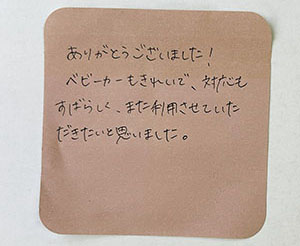 ありがとうございました!
ベビーカーもきれいで、対応も
すばらしく、また利用させていた
だきたいと思いました。